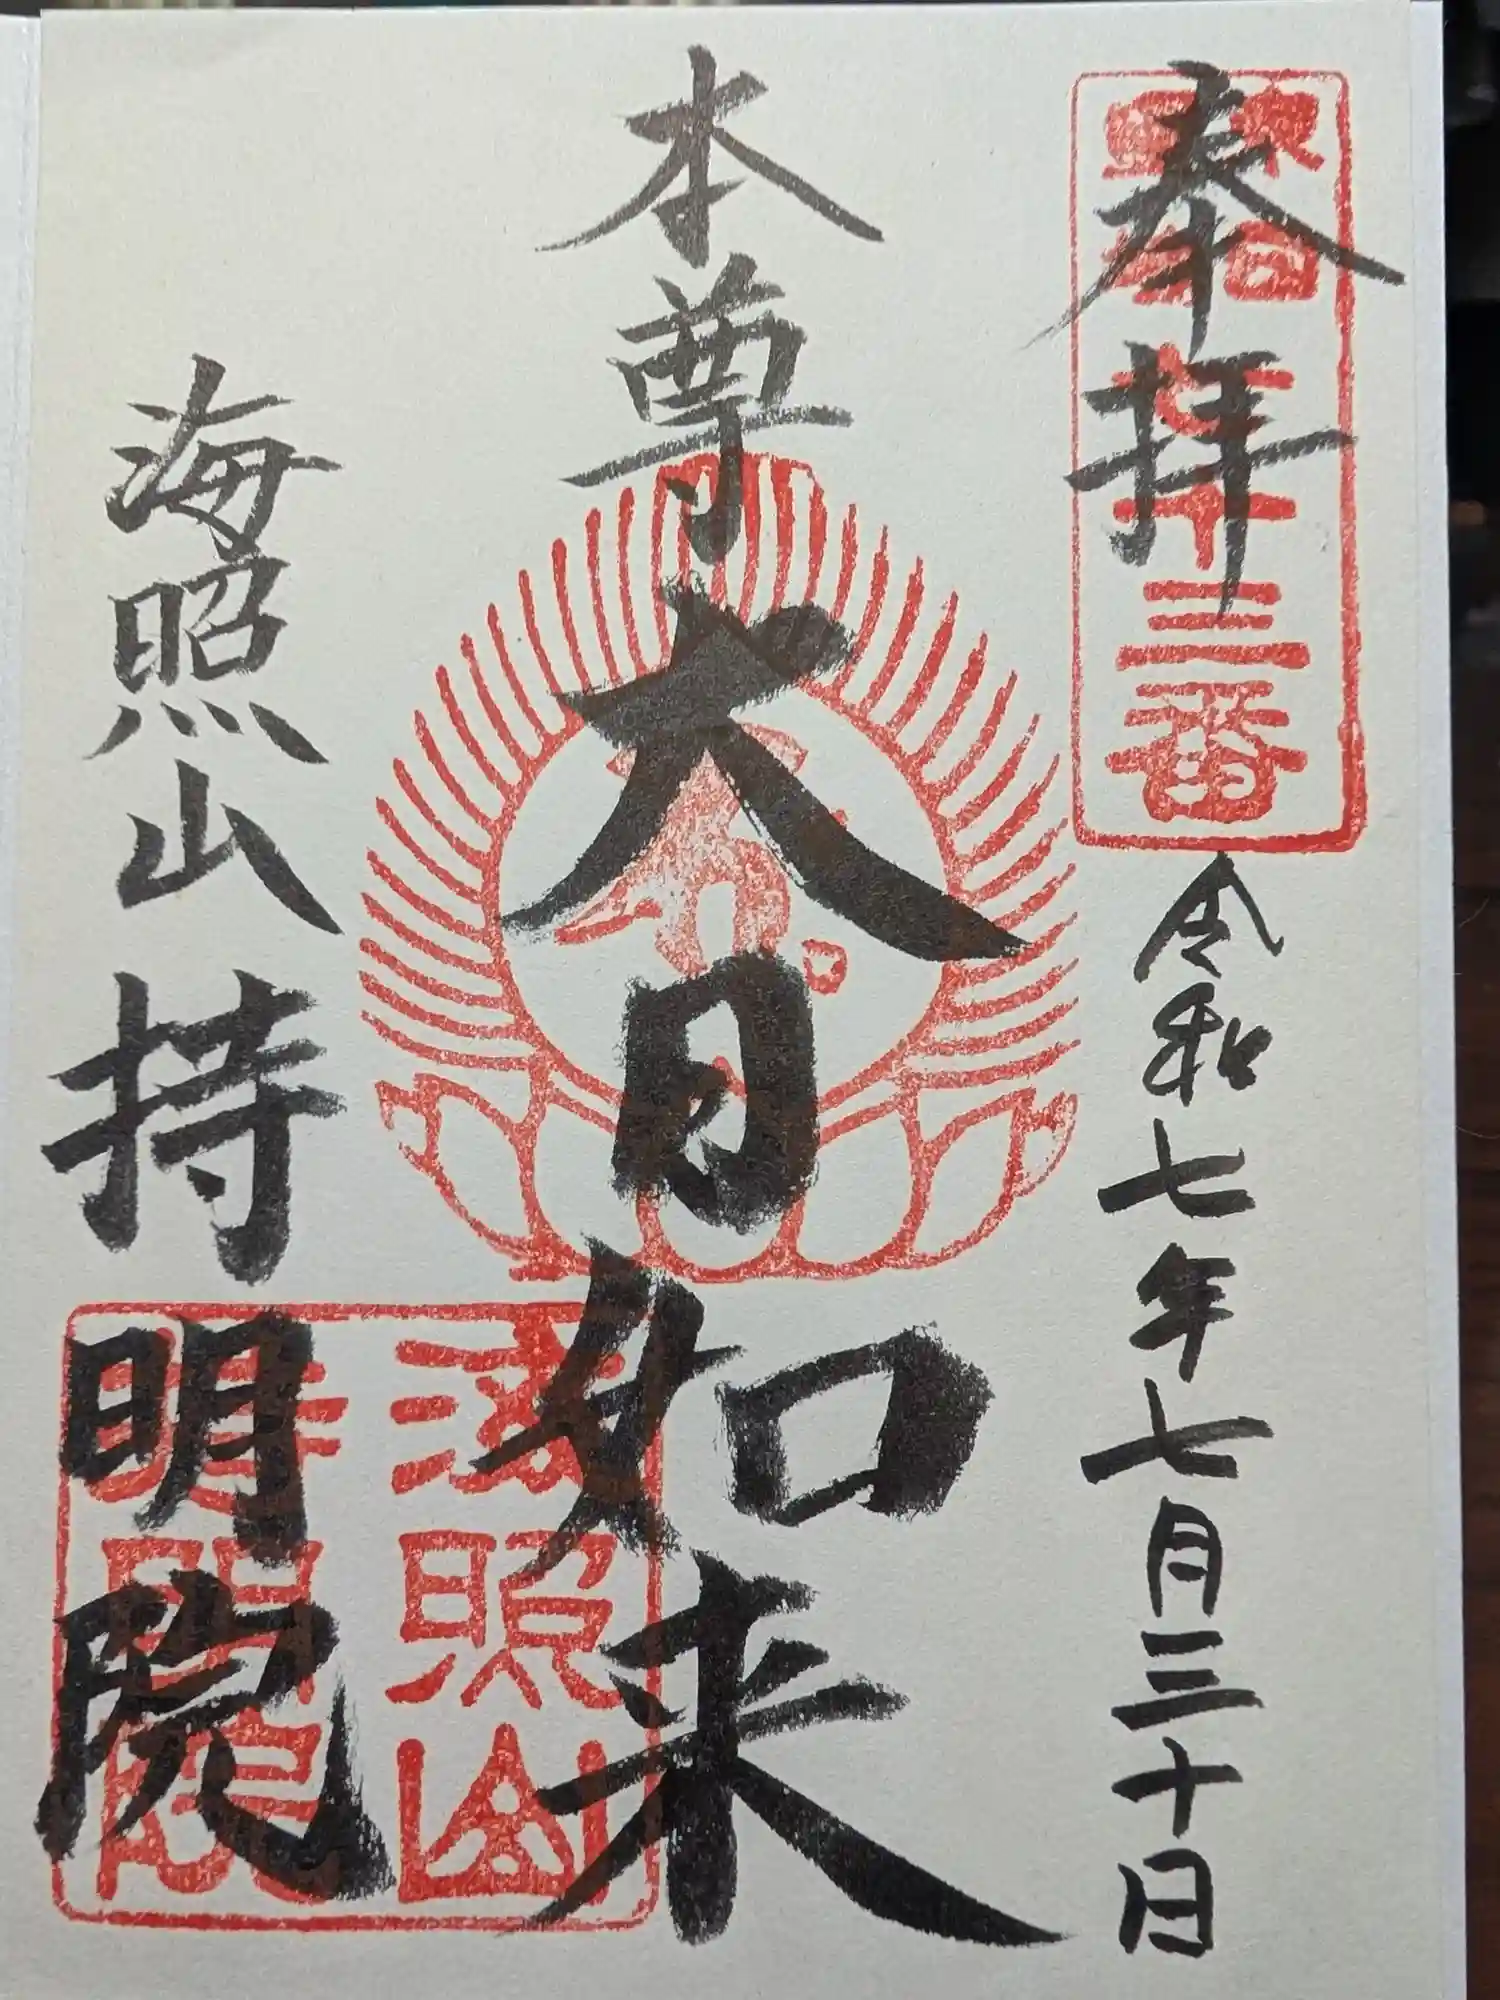 奉拝
令和七年七月三十日
本尊
大日如来
海照山
持明院
海照山
持明院